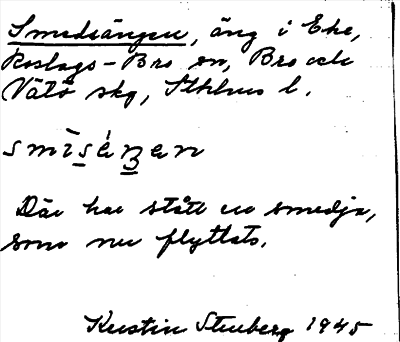 Smedsängen, äng i Eke,
Roslags-Bro sn, Bro och
Vätö skg, Sthlms l.
smīsèŋen
Där har stått en smedja,
som nu flyttats.
Kerstin Stenberg 1945